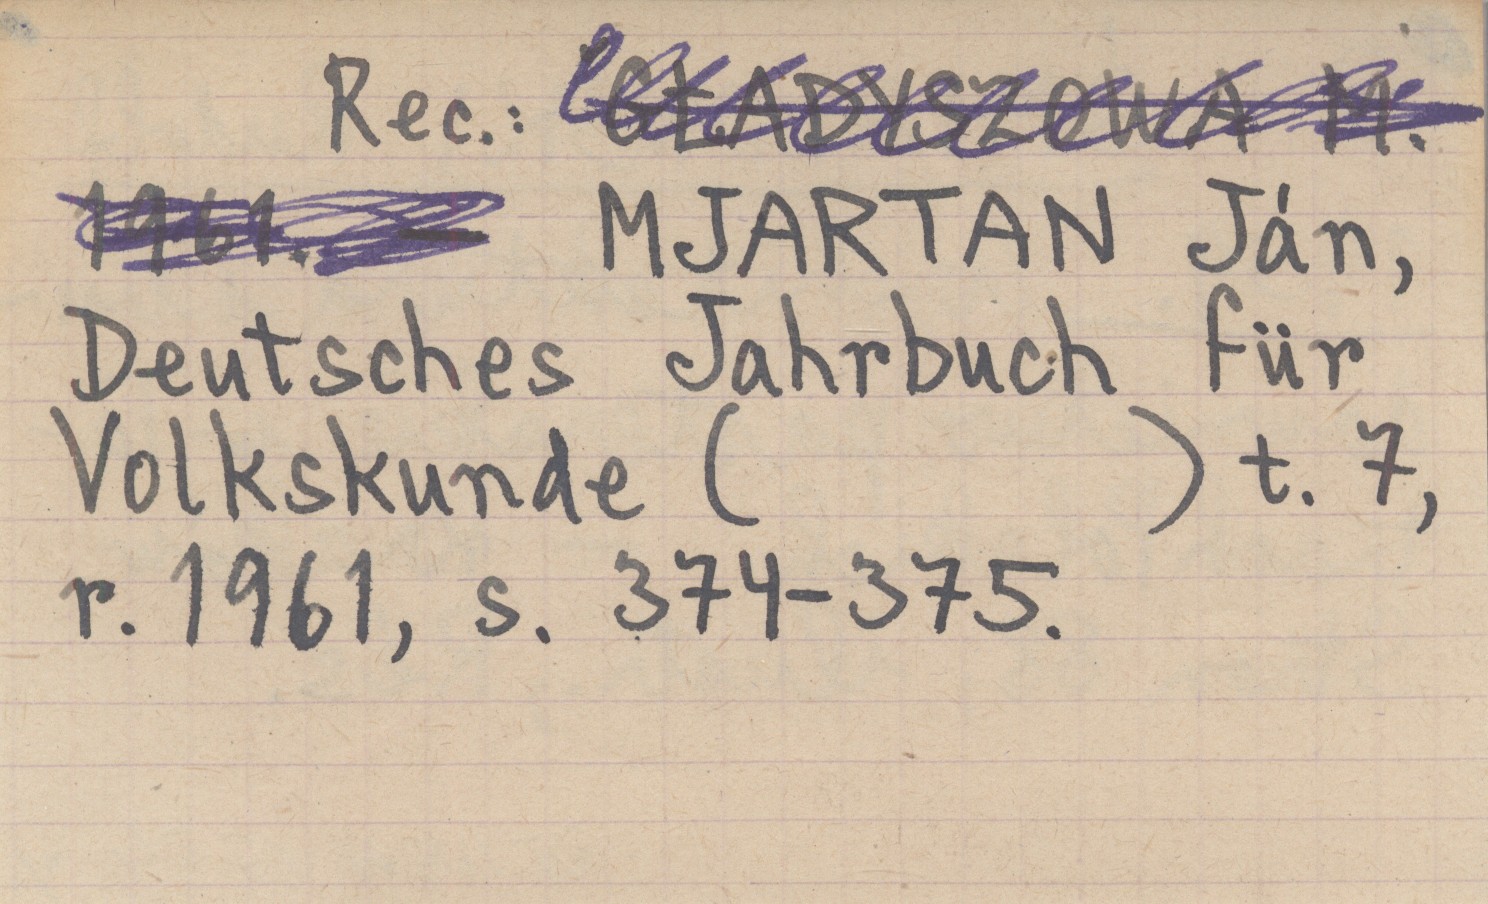 Rec.: GŁADYSZOWA M.
1961. — MJARTAN Ján,
Deutsches Jahrbuch für
Volkskunde ( ) t. 7,
r. 1961, s. 374-375.